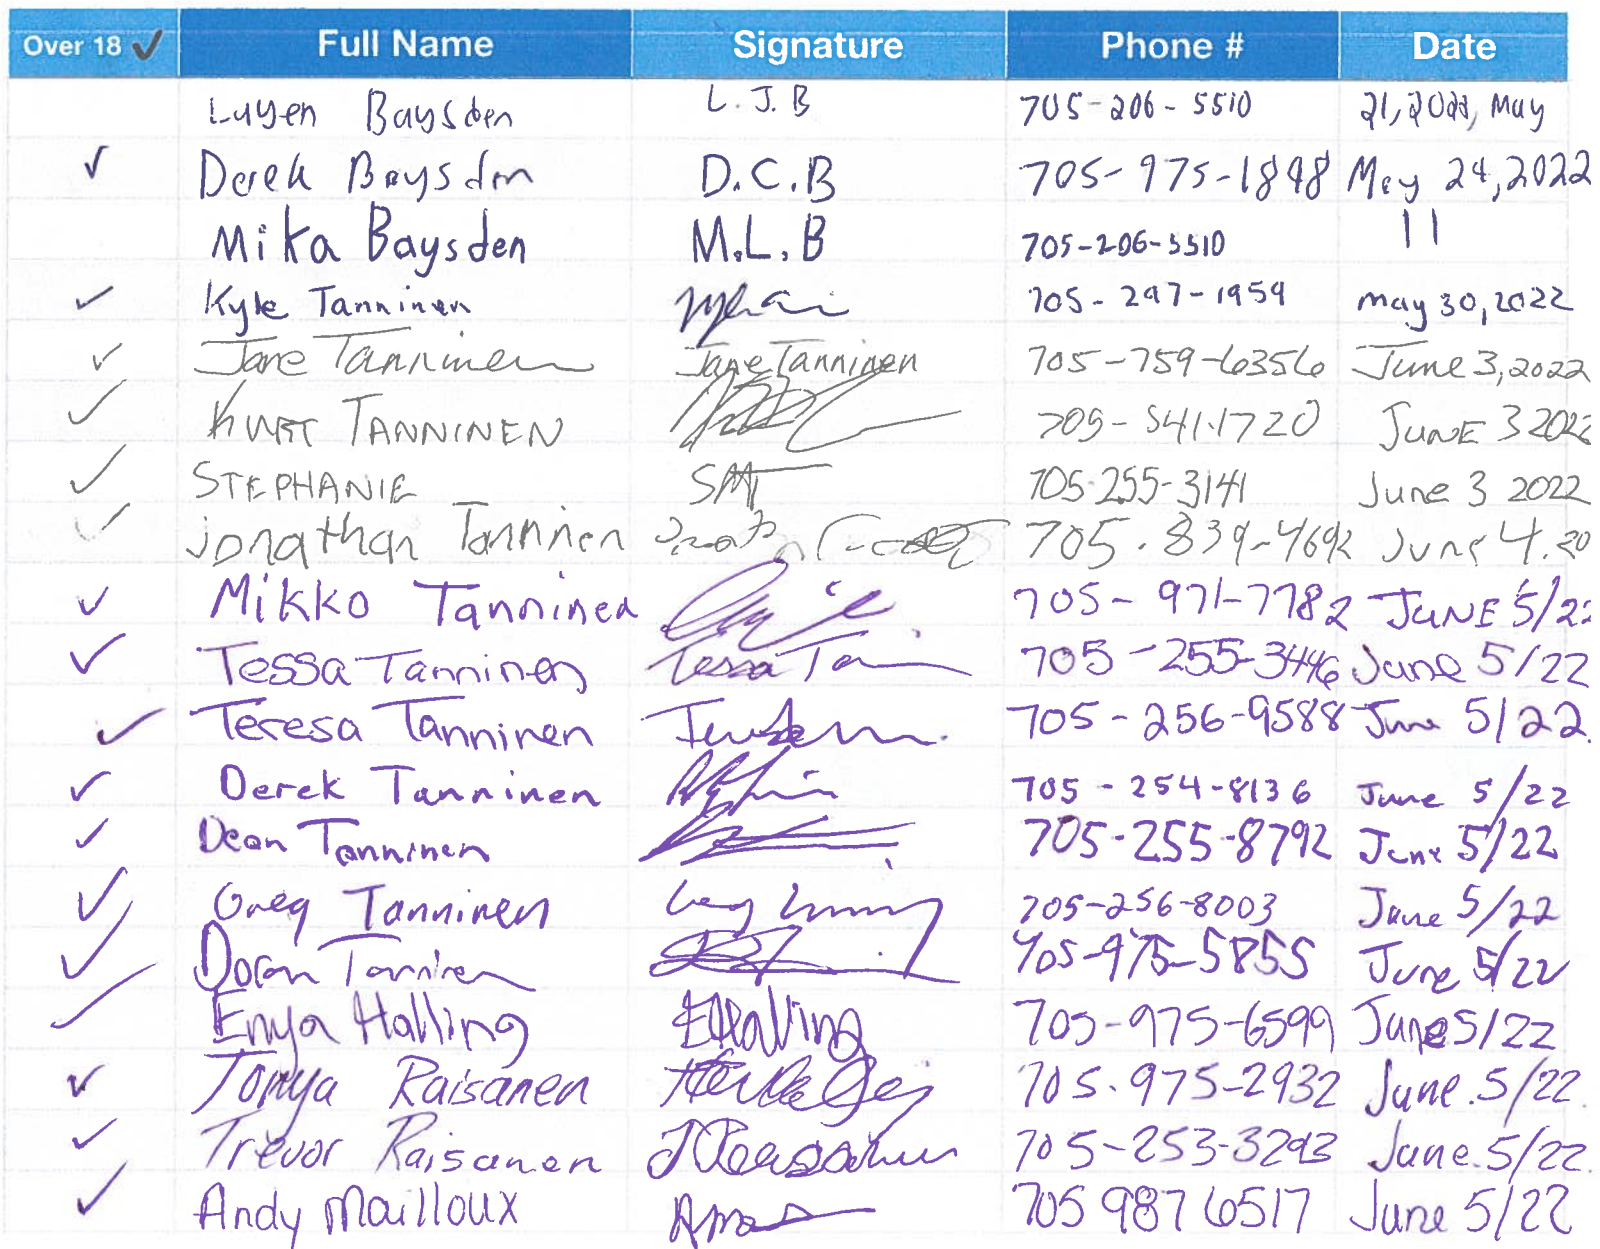 Over 18 ✓ Full Name Signature Phone # Date
Luyen Baysden L. J. B 705-206-5510 21, 2022, May
✓ Derek Baysden D.C.B 705-975-1898 May 24, 2022
Mika Baysden M.L.B 705-206-5510 11
✓ Kyle Tanninen 705-297-1959 may 30, 2022
✓ Jane Tanninen Jane Tanninen 705-759-6356 June 3, 2022
✓ KURT TANNINEN 705-541-1720 JUNE 3 2022
✓ STEPHANIE SMT 705-255-3141 June 3 2022
✓ jonathan Tanninen 705.839-4692 June 4.20
✓ Mikko Tanninen 705-971-7782 JUNE 5/22
✓ Tessa Tanninen Tessa 705-255-3446 June 5/22
✓ Teresa Tanninen 705-256-9588 June 5/22
✓ Derek Tanninen 705-254-8136 June 5/22
✓ Dean Tanninen 705-255-8792 June 5/22
✓ Greg Tanninen 705-256-8003 June 5/22
✓ Doran Tanninen 705-975-5855 June 5/22
✓ Enya Halling EHalling 705-975-6599 June 5/22
✓ Tonya Raisanen 705.975-2932 June.5/22
✓ Trevor Raisanen 705-253-3293 June.5/22
✓ Andy Mailloux 705 987 6517 June 5/22